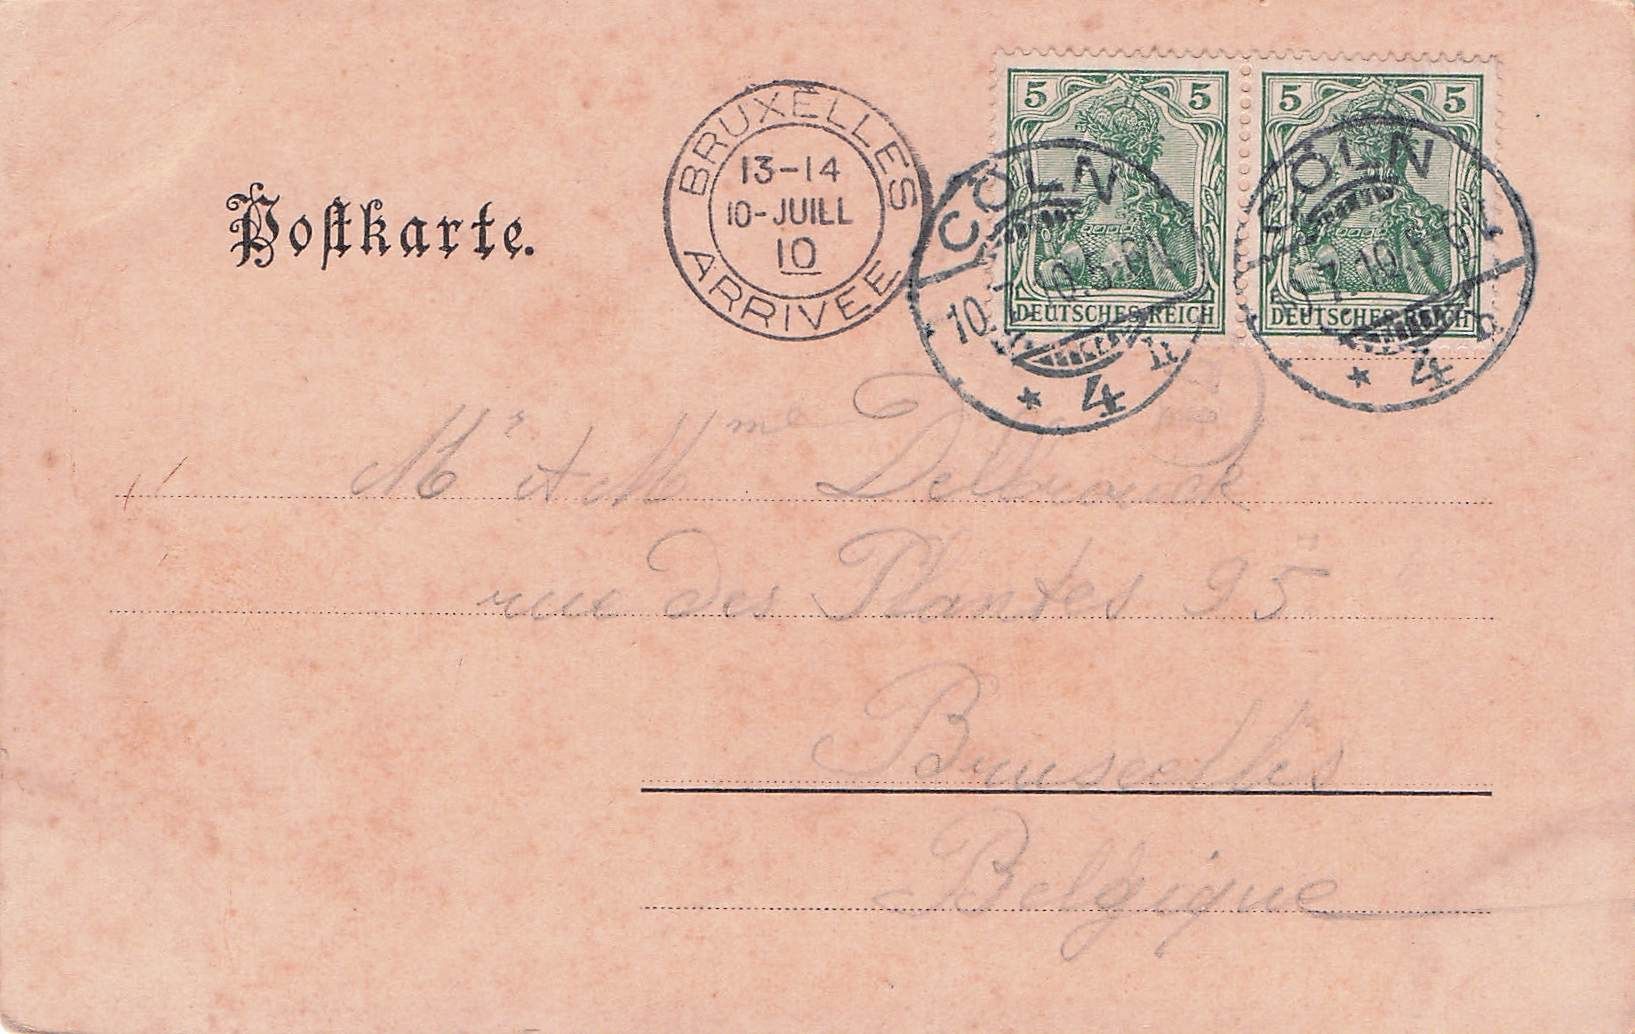 Postkarte.
BRUXELLES
13-14
10-JUILL
10
ARRIVEE
5 5
DEUTSCHES REICH
5 5
DEUTSCHES REICH
CÖLN
10.7.10.5-6N
* 4 h
CÖLN
10.7.10.5-6N
* 4 h
Mr et Mme
rue des Plantes 95
Bruxelles
Belgique